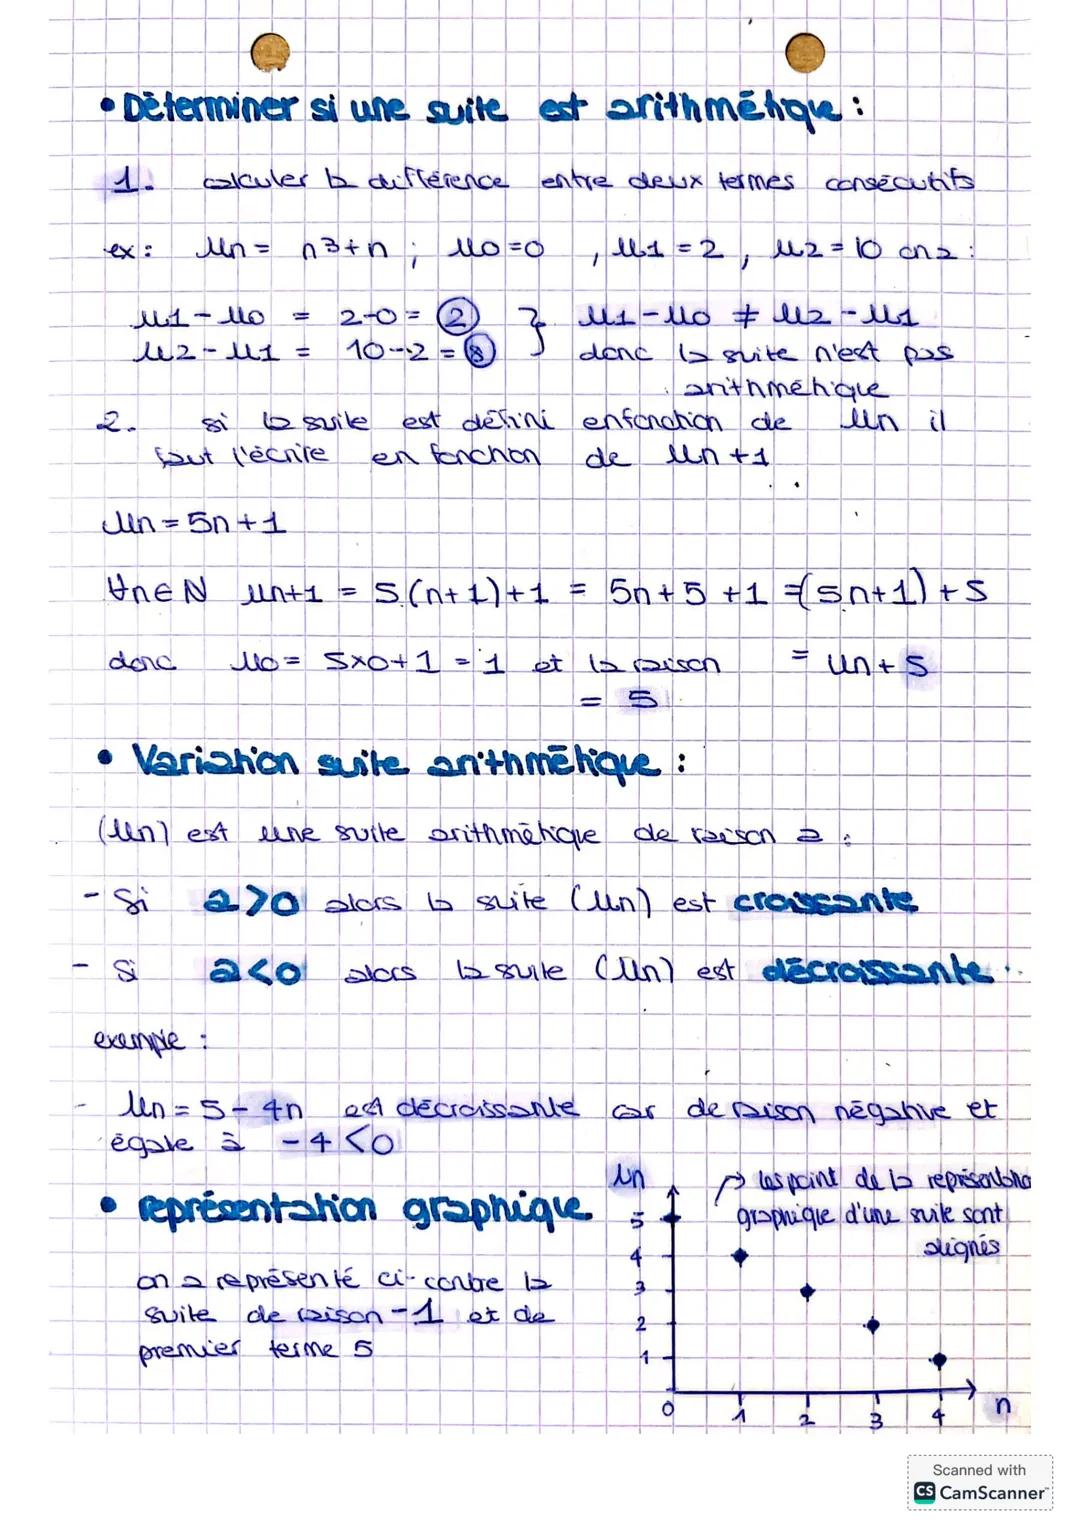 • Déterminer si une suite est arithmétique :
1. calculer la différence entre deux termes consécutifs
ex : Un = n³+n ; U0=0 , U1 = 2 , U2 = 10 on a :
U1-U0 = 2-0 = 2 } U1-U0 ≠ U2-U1
U2-U1 = 10-2 = 8 donc la suite n'est pas
arithmétique
2. si la suite est défini enfonction de Un il
faut l'écrire en fonction de Un+1
Un = 5n+1
∀n∈N Un+1 = 5(n+1)+1 = 5n+5+1 =(5n+1)+5
donc U0 = 5×0+1 = 1 et la raison = Un+5
= 5
• Variation suite arithmétique :
(Un) est une suite arithmétique de raison a :
- Si a>0 alors la suite (Un) est croissante
- Si a<0 alors la suite (Un) est décroissante
exemple :
- Un = 5-4n est décroissante car de raison négative et
égale à -4<0
• représentation graphique
on a représenté ci-contre la
suite de raison -1 et de
premier terme 5
Un
les point de la représentatio
graphique d'une suite sont
alignés
5
4
3
2
1
0 1 2 3 4 n
Scanned with
CS CamScanner